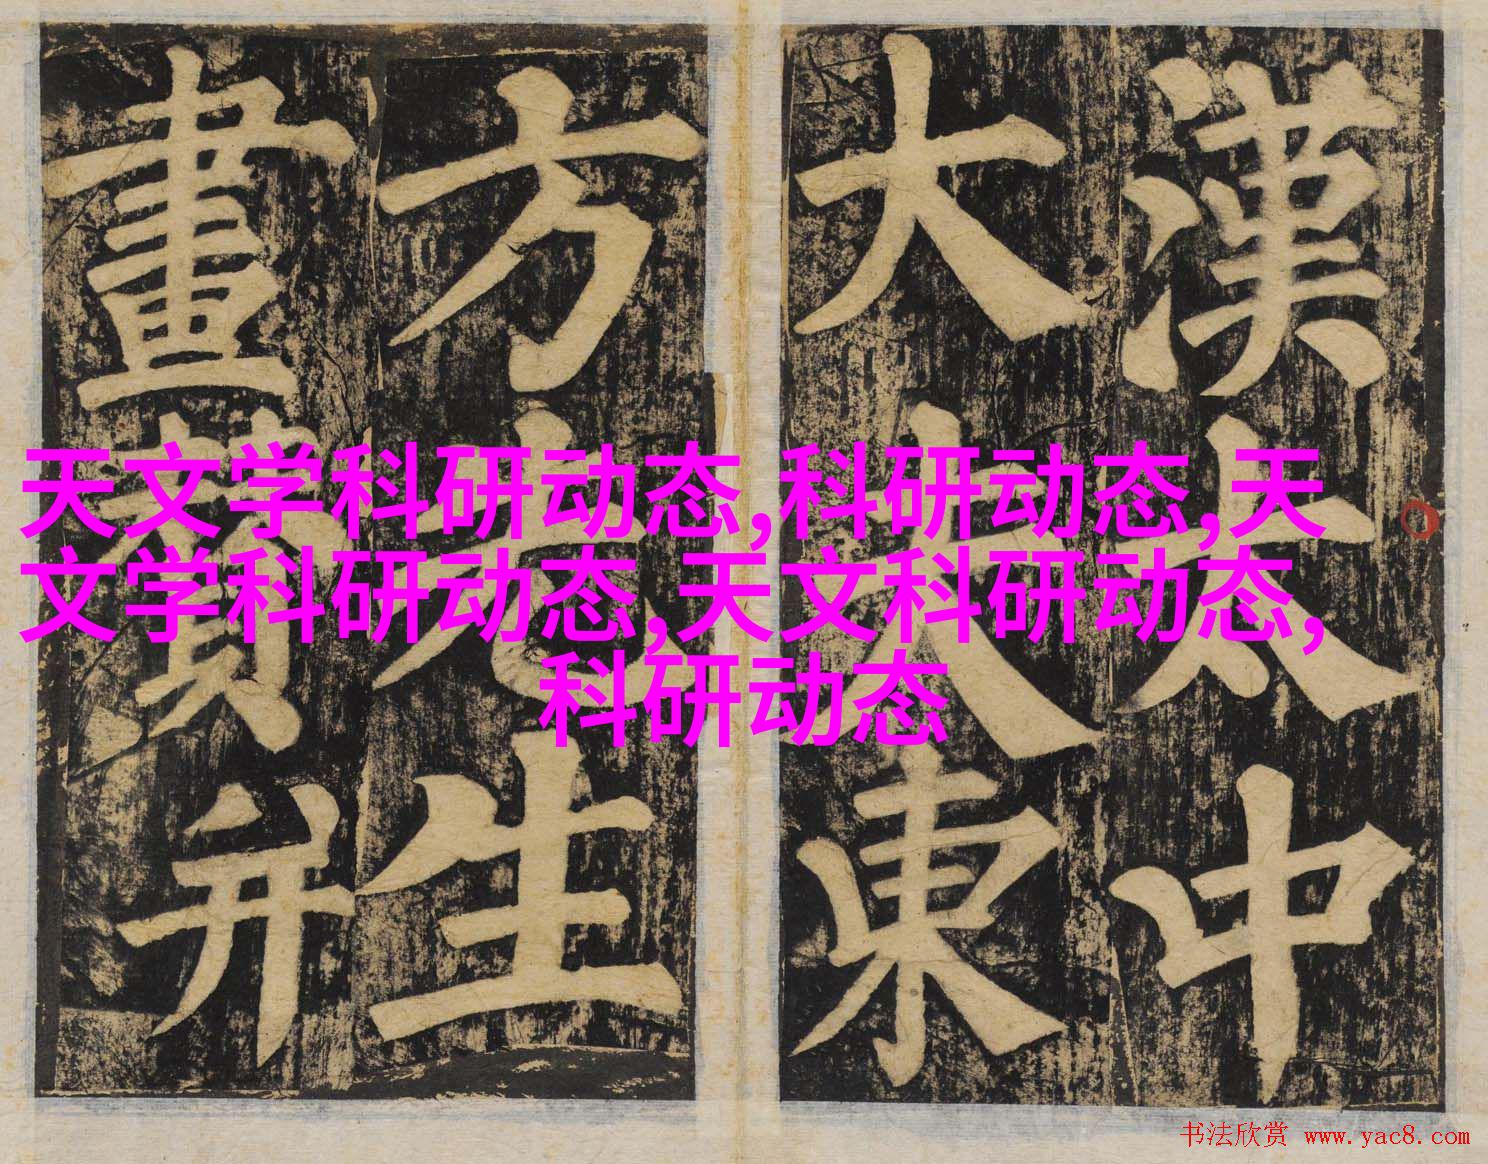 漢太中
大夫東
方先生
畫贊并
天文学科研动态,科研动态,天
文学科研动态,天文科研动态,
科研动态
书法欣赏 www.yac8.com